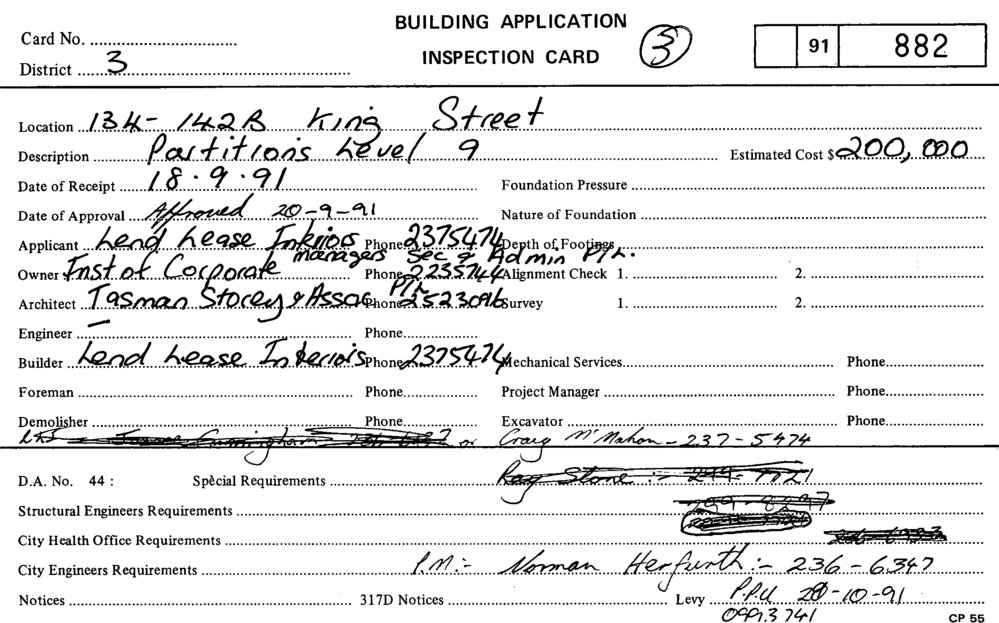 BUILDING APPLICATION
INSPECTION CARD
3
91 882
Card No.
District 3
Location 134-142B King Street
Description Partitions Level 9 Estimated Cost $ 200,000
Date of Receipt 18.9.91 Foundation Pressure
Date of Approval Approved 20-9-91 Nature of Foundation
Applicant Lend Lease Interiors Phone 2375474 Depth of Footings
Owner Inst of Corporate managers Sec & Admin P/L. Phone 2235744 Alignment Check 1. 2.
Architect Tasman Storey & Assoc P/L Phone 2523096 Survey 1. 2.
Engineer – Phone
Builder Lend Lease Interiors Phone 2375474 Mechanical Services Phone
Foreman Phone Project Manager Phone
Demolisher Phone Excavator Phone
Cunningham or Craig McMahon - 237-5474
D.A. No. 44 : Special Requirements Ray Stone :- 299-7721
Structural Engineers Requirements
City Health Office Requirements
City Engineers Requirements P.M:- Norman Herfurth :- 236-6347
Notices 317D Notices Levy P.P.U -10-91
CP 55